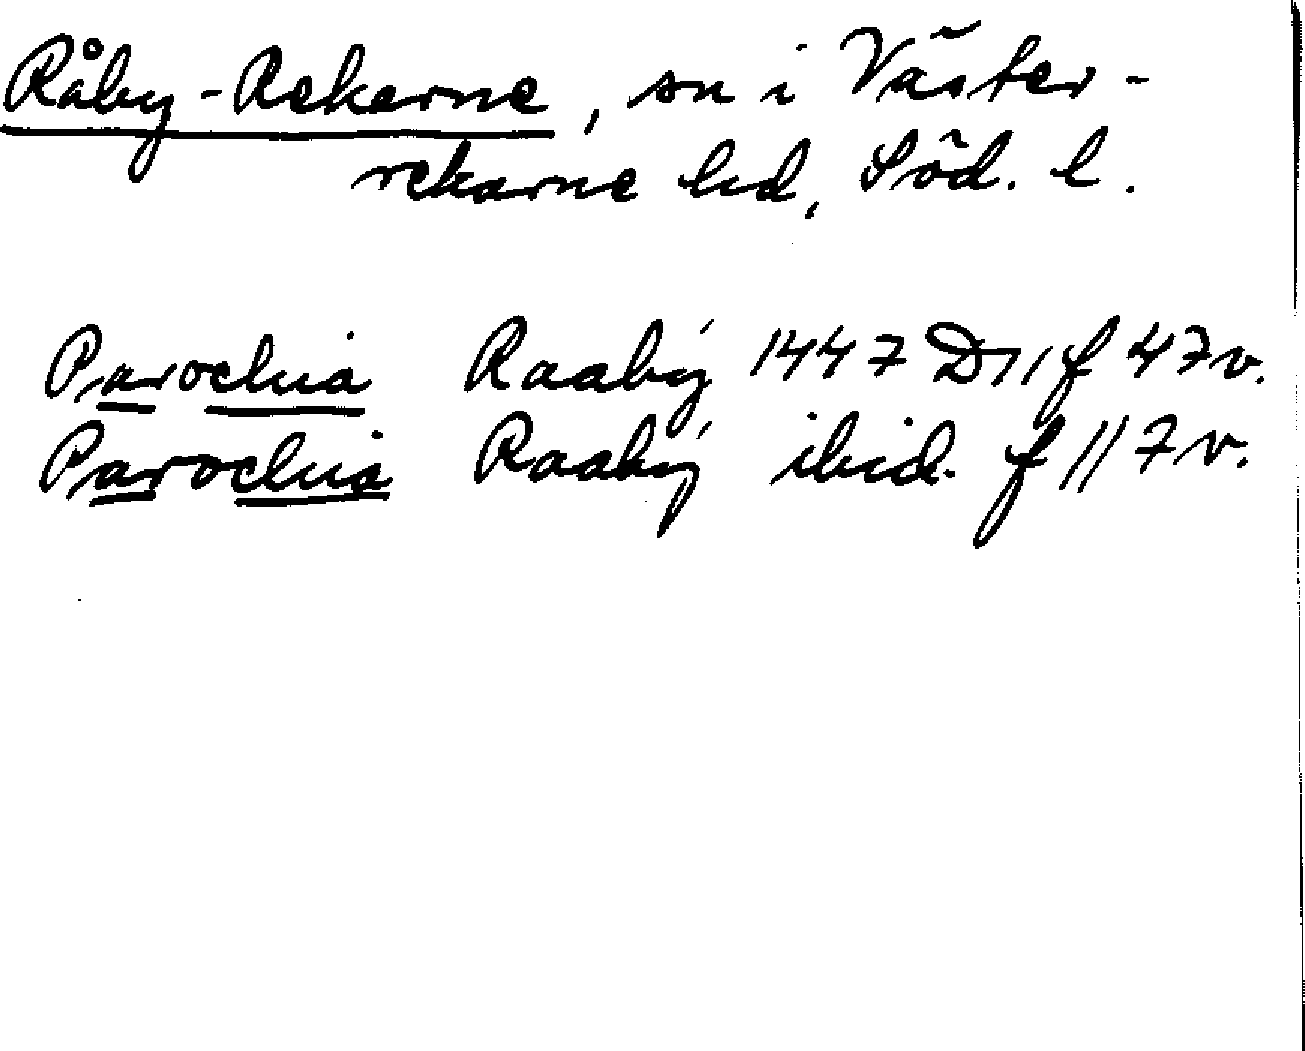 Råby-Rekarne, sn i Väster-
rekarne hd, Söd. l.
Parochia Raabý 1447 D11 f 47v.
Parochia Raabý ibid. f 117v.